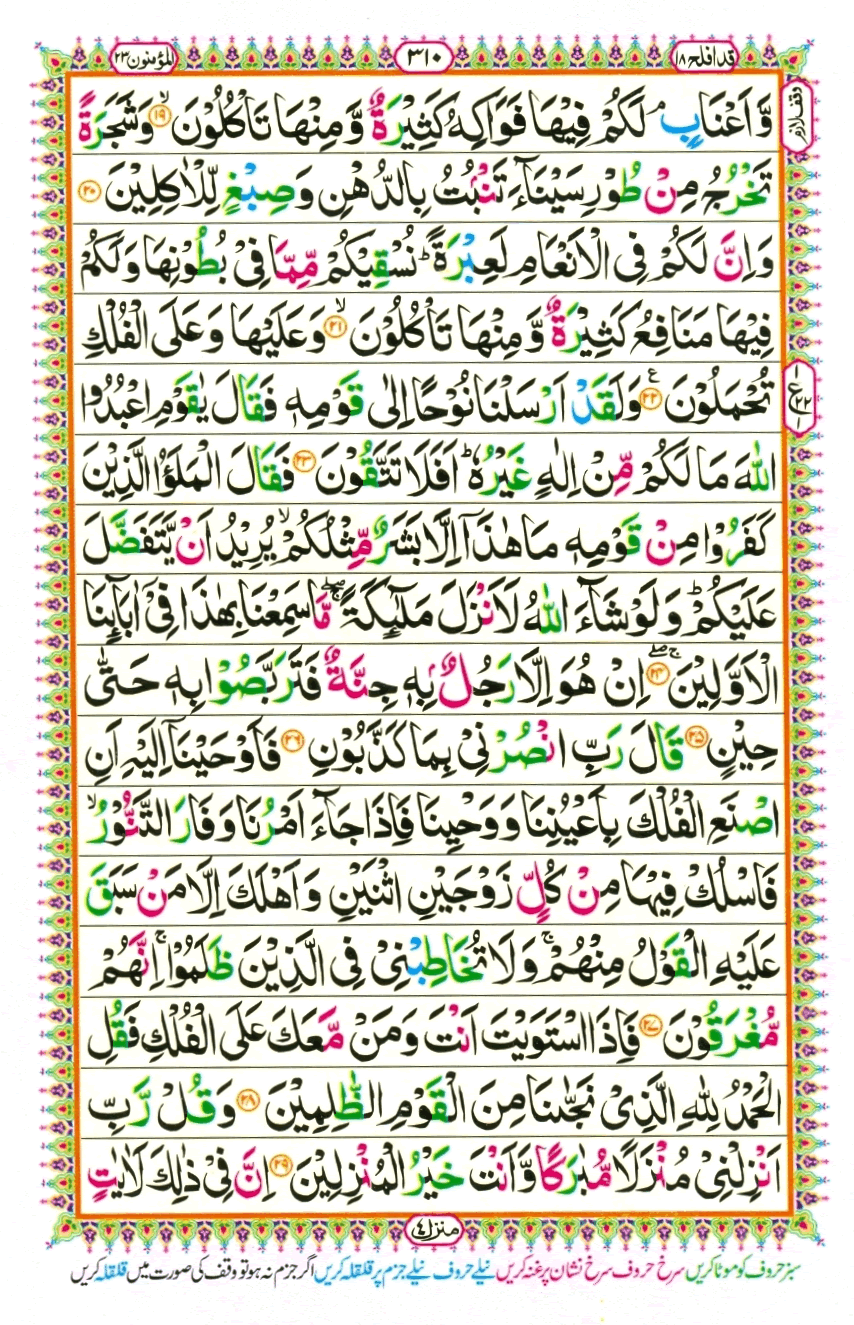 قد افلح ١٨
٣١٠
المؤمنون ٢٣
وقف لازم
وَّاَعۡنَابٍ‌ۘ لَـكُمۡ فِيۡهَا فَوَاكِهُ كَثِيۡرَةٌ وَّمِنۡهَا تَاۡكُلُوۡنَۙ‏ ١٩ وَشَجَرَةً
تَخۡرُجُ مِنۡ طُوۡرِ سَيۡنَآءَ تَنۡۢبُتُ بِالدُّهۡنِ وَصِبۡغٍ لِّلۡاٰكِلِيۡنَ ٢٠
وَاِنَّ لَـكُمۡ فِى الۡاَنۡعَامِ لَعِبۡرَةً‌ ؕ نُسۡقِيۡكُمۡ مِّمَّا فِىۡ بُطُوۡنِهَا وَلَـكُمۡ
فِيۡهَا مَنَافِعُ كَثِيۡرَةٌ وَّمِنۡهَا تَاۡكُلُوۡنَۙ ٢١ وَعَلَيۡهَا وَعَلَى الۡـفُلۡكِ
تُحۡمَلُوۡنَ ٢٢ ع وَلَـقَدۡ اَرۡسَلۡنَا نُوۡحًا اِلٰى قَوۡمِهٖ فَقَالَ يٰقَوۡمِ اعۡبُدُوا
ع ٢٢
اللّٰهَ مَا لَـكُمۡ مِّنۡ اِلٰهٍ غَيۡرُهٗ‌ ؕ اَفَلَا تَتَّقُوۡنَ ٢٣ فَقَالَ الۡمَلَؤُا الَّذِيۡنَ
كَفَرُوۡا مِنۡ قَوۡمِهٖ مَا هٰذَاۤ اِلَّا بَشَرٌ مِّثۡلُكُمۡۙ يُرِيۡدُ اَنۡ يَّـتَفَضَّلَ
عَلَيۡكُمۡ ؕ وَلَوۡ شَآءَ اللّٰهُ لَاَنۡزَلَ مَلٰٓئِكَةً ۖۚ مَّا سَمِعۡنَا بِهٰذَا فِىۡۤ اٰبَآئِنَا
الۡاَوَّلِيۡنَ‌ۚۖ ٢٤ اِنۡ هُوَ اِلَّا رَجُلٌۢ بِهٖ جِنَّةٌ فَتَرَبَّصُوۡا بِهٖ حَتّٰى
حِيۡنٍ ٢٥ قَالَ رَبِّ انْصُرۡنِىۡ بِمَا كَذَّبُوۡنِ ٢٦ فَاَوۡحَيۡنَاۤ اِلَيۡهِ اَنِ
اصۡنَعِ الۡفُلۡكَ بِاَعۡيُنِنَا وَوَحۡيِنَا فَاِذَا جَآءَ اَمۡرُنَا وَفَارَ التَّنُّوۡرُ‌ۙ
فَاسۡلُكۡ فِيۡهَا مِنۡ كُلٍّ زَوۡجَيۡنِ اثۡنَيۡنِ وَاَهۡلَكَ اِلَّا مَنۡ سَبَقَ
عَلَيۡهِ الۡقَوۡلُ مِنۡهُمۡ‌ۚ وَلَا تُخَاطِبۡنِىۡ فِى الَّذِيۡنَ ظَلَمُوۡا‌ۚ اِنَّهُمۡ
مُّغۡرَقُوۡنَ ٢٧ فَاِذَا اسۡتَوَيۡتَ اَنۡتَ وَمَنۡ مَّعَكَ عَلَى الۡـفُلۡكِ فَقُلِ
الۡحَمۡدُ لِلّٰهِ الَّذِىۡ نَجّٰٮنَا مِنَ الۡقَوۡمِ الظّٰلِمِيۡنَ ٢٨ وَقُلْ رَّبِّ
اَنۡزِلۡنِىۡ مُنۡزَلًا مُّبٰـرَكًا وَّاَنۡتَ خَيۡرُ الۡمُنۡزِلِيۡنَ ٢٩ اِنَّ فِىۡ ذٰلِكَ لَاٰيٰتٍ
منزل ٤
سبز حروف کو موٹا کریں سرخ حروف سرخ نشان پر غنہ کریں نیلے حروف نیلے جزم پر قلقلہ کریں اگر جزم نہ ہو تو وقف کی صورت میں قلقلہ کریں